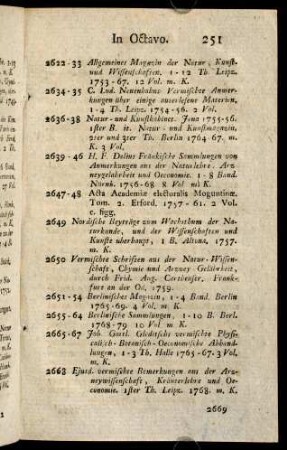 In Octavo. 251
2622-33 Allgemeines Magazin der Natur, Kunst-
und Wissenschaften. 1-12 Th. Leipz.
1753-67. 12 Vol. m. K.
2634-35 C. Lud. Neuenhahns Vermischte Anmer-
kungen über einige auserlesene Materien,
1-4 Th. Leipz. 1754-56. 2 Vol.
2636-38 Natur- und Kunstkabinet. Jena 1755-56.
1ster B. it. Natur- und Kunstmagazin,
2ter und 3ter Th. Berlin 1764-67. m.
K. 3 Vol,
2639-46 H. F. Delius Fränkische Sammlungen von
Anmerkungen aus der Naturlehre, Arz-
neygelahrheit und Oeconomie. 1-8 Band.
Nürnb. 1756-68 8 Vol mit K.
2647-48 Acta Academiæ electoralis Moguntinæ.
Tom. 2. Erford. 1757-61. 2 Vol.
c. figg.
2649 Nordische Beyträge zum Wachsthum der Na-
turkunde, und der Wissenschaften und
Künste überhaupt, 1 B. Altona, 1757.
m. K.
2650 Vermischte Schriften aus der Natur-Wissen-
schaft, Chymie und Arzney Gelahrheit,
durch Frid. Aug. Cartheuser. Frank-
furt an der Od. 1759.
2651-54 Berlinisches Magazin, 1-4 Band. Berlin
1765-69. 4 Vol. m. K.
2655-64 Berlinische Sammlungen, 1-10 B. Berl.
1768-79 10 Vol. m. K.
2665-67 Joh. Gottl. Gleditschs vermischte Physi-
calisch-Botanisch-Oeconomische Abhand-
lungen, 1-3 Th. Halle 1765-67. 3 Vol,
m. K.
2668 Ejusd. vermischte Bemerkungen aus der Arz-
neywissenschaft, Kräuterlehre und Oe-
conomie. 1ster Th. Leipz. 1768. m. K.
2669